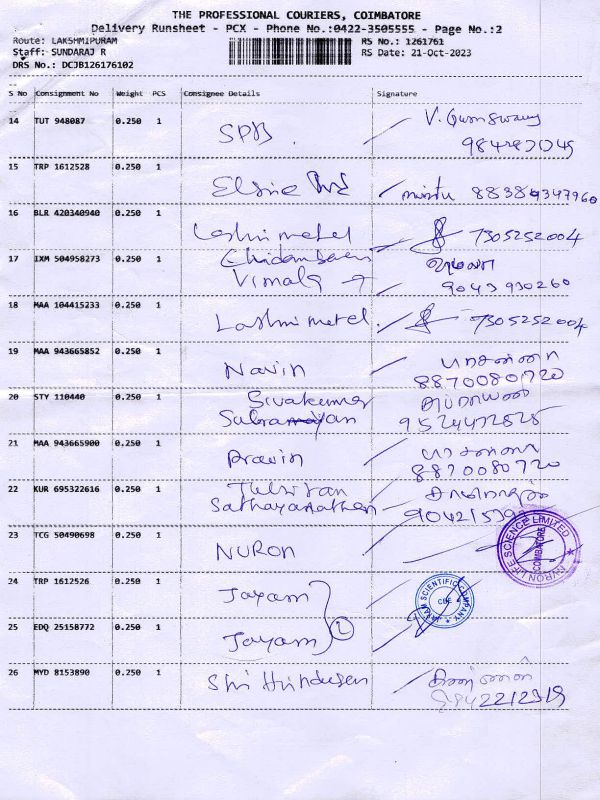 THE PROFESSIONAL COURIERS, COIMBATORE
Delivery Runsheet - PCX - Phone No.:0422-3505555 - Page No.:2
Route: LAKSHMIPURAM RS No.: 1261761
Staff: SUNDARAJ R RS Date: 21-Oct-2023
DRS No.: DCJB126176102
S No Consignment No Weight PCS Consignee Details Signature
14 TUT 948087 0.250 1 SPB
15 TRP 1612528 0.250 1 88389347960
16 BLR 420340940 0.250 1 Lashmi metel 7305252004
17 IXM 504958273 0.250 1 Chidambaram
Vimala 9043930260
18 MAA 104415233 0.250 1 Lashmi metel 7305252004
19 MAA 943665852 0.250 1 Navin
8870080720
20 STY 110440 0.250 1 Sivakumar
Subramayan 9524472525
21 MAA 943665900 0.250 1 Pravin
8870080720
22 KUR 695322616 0.250 1
Sathayanathan
23 TCG 50490698 0.250 1 NURON
NURON LIFE SCIENCE LIMITED
COIMBATORE
24 TRP 1612526 0.250 1 Jayam
SCIENTIFIC COMPANY
CBE
25 EDQ 25158772 0.250 1 Jayam
26 MYD 8153890 0.250 1 Shri
9842212319